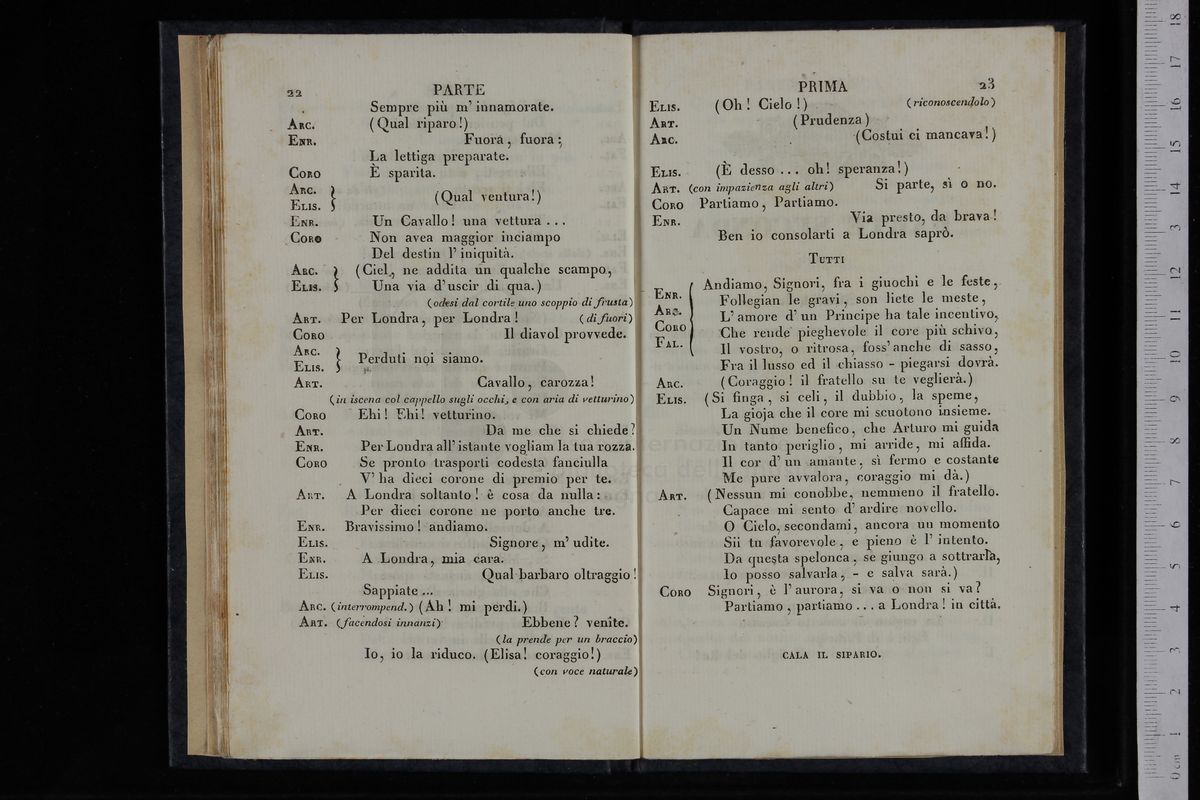 22 PARTE
Sempre più m' innamorate.
Arc. (Qual riparo!)
Enr. Fuora, fuora;
La lettiga preparate.
Coro È sparita.
Arc. } (Qual ventura!)
Elis.
Enr. Un Cavallo! una vettura ...
Coro Non avea maggior inciampo
Del destin l' iniquità.
Arc. } (Ciel, ne addita un qualche scampo,
Elis. Una via d'uscir di qua.)
(odesi dal cortile uno scoppio di frusta)
Art. Per Londra, per Londra! (di fuori)
Coro Il diavol provvede.
Arc. } Perduti noi siamo.
Elis.
Art. Cavallo, carozza!
(in iscena col cappello sugli occhi, e con aria di vetturino)
Coro Ehi! Ehi! vetturino.
Art. Da me che si chiede?
Enr. Per Londra all' istante vogliam la tua rozza.
Coro Se pronto trasporti codesta fanciulla
V' ha dieci corone di premio per te.
Art. A Londra soltanto! è cosa da nulla:
Per dieci corone ne porto anche tre.
Enr. Bravissimo! andiamo.
Elis. Signore, m' udite.
Enr. A Londra, mia cara.
Elis. Qual barbaro oltraggio!
Sappiate ...
Arc. (interrompend.) (Ah! mi perdi.)
Art. (facendosi innanzi) Ebbene? venite.
(la prende per un braccio)
Io, io la riduco. (Elisa! coraggio!)
(con voce naturale)
PRIMA 23
Elis. (Oh! Cielo!) (riconoscendolo)
Art. (Prudenza)
Arc. (Costui ci mancava!)
Elis. (È desso ... oh! speranza!)
Art. (con impazienza agli altri) Si parte, sì o no.
Coro Partiamo, Partiamo.
Enr. Via presto, da brava!
Ben io consolarti a Londra saprò.
Tutti
Enr. Andiamo, Signori, fra i giuochi e le feste,
Follegian le gravi, son liete le meste,
Arc. L' amore d' un Principe ha tale incentivo,
Coro Che rende pieghevole il core più schivo,
Fal. Il vostro, o ritrosa, foss' anche di sasso,
Fra il lusso ed il chiasso - piegarsi dovrà.
Arc. (Coraggio! il fratello su te veglierà.)
Elis. (Si finga, si celi, il dubbio, la speme,
La gioja che il core mi scuotono insieme.
Un Nume benefico, che Arturo mi guida
In tanto periglio, mi arride, mi affida.
Il cor d' un amante, sì fermo e costante
Me pure avvalora, coraggio mi dà.)
Art. (Nessun mi conobbe, nemmeno il fratello.
Capace mi sento d' ardire novello.
O Cielo, secondami, ancora un momento
Sii tu favorevole, e pieno è l' intento.
Da questa spelonca, se giungo a sottrarla,
Io posso salvarla, - e salva sarà.)
Coro Signori, è l' aurora, si va o non si va?
Partiamo, partiamo ... a Londra! in città.
CALA IL SIPARIO.
0 cm 1 2 3 4 5 6 7 8 9 10 11 12 13 14 15 16 17 18